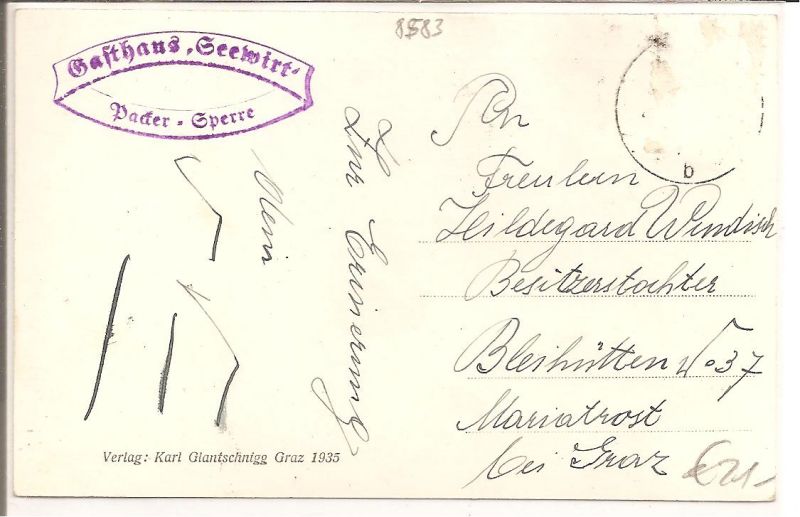 8583
Gasthaus „Seewirt“
Packer-Sperre
b
An
Freulein
Hildegard Windisch
Besitzerstochter
Bleihütten No 37
Mariatrost
bei Graz
Zur Erinerung
Verlag: Karl Glantschnigg Graz 1935